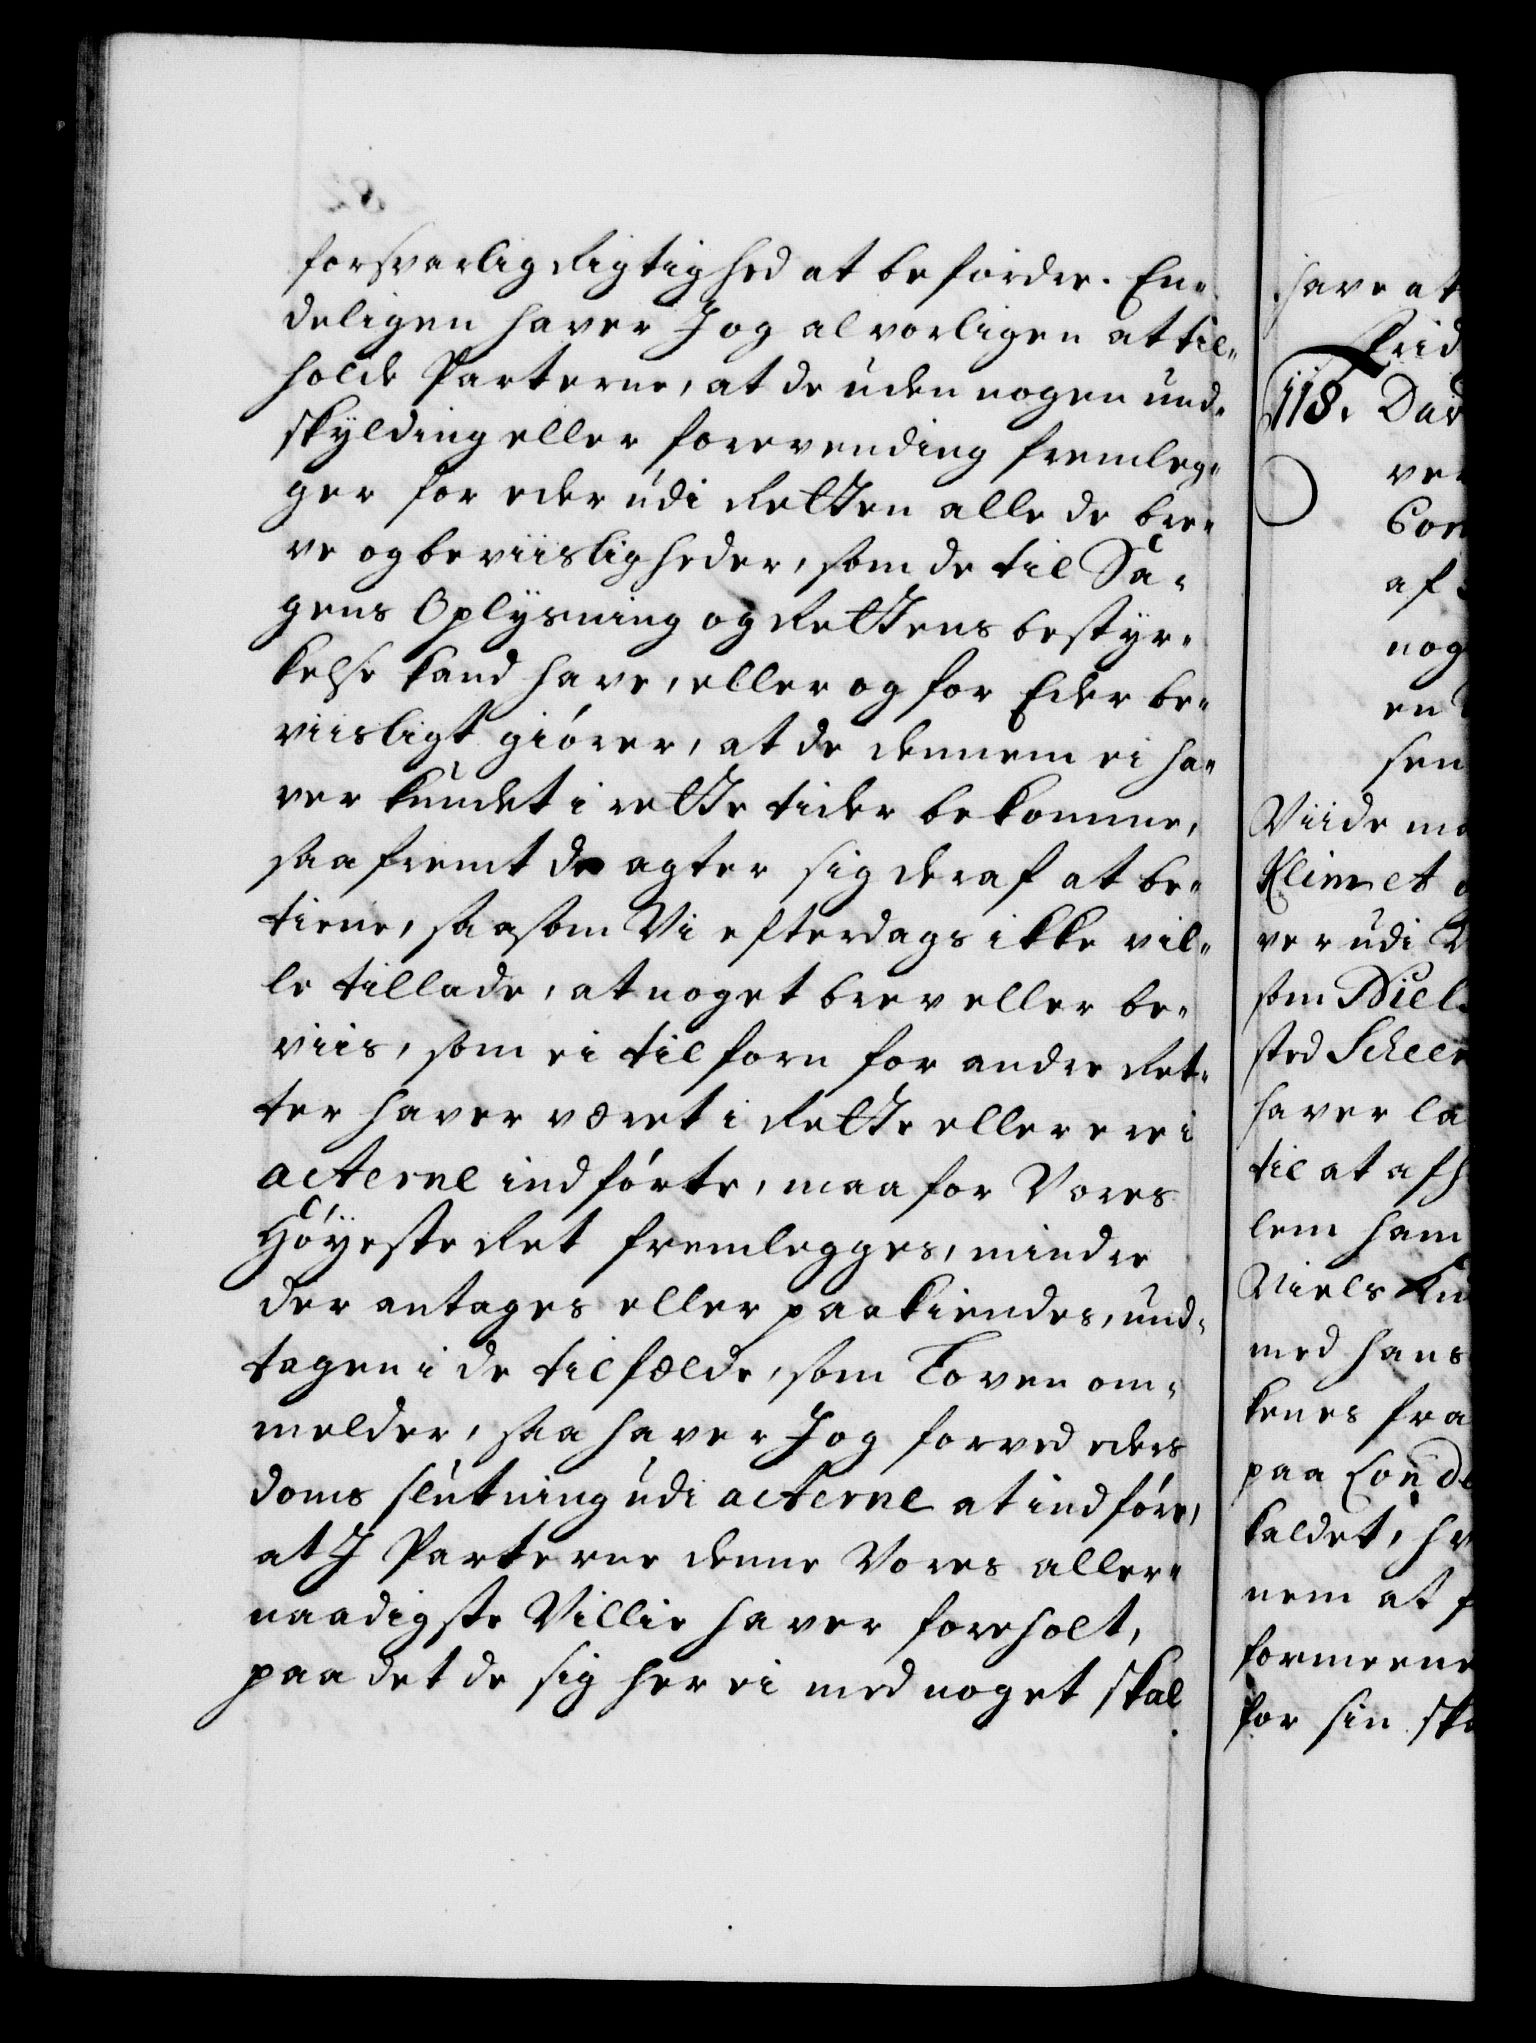 forsvarlig Rigtighed at befordre. En-
deligen haver J og alvorligen at til-
holde Parterne, at de uden nogen und-
skylding eller forevending fremleg-
ger for eder udi Retten alle de bre-
ve og beviisligheder, som de til Sa-
gens Oplysning og Rettens bestyr-
kelse kand have, eller og for Eder be-
viisligt giører, at de dennem ei ha-
ver kundet i rette tider bekomme,
saafremt de agter sig deraf at be-
tiene, saasom Vi efterdags ikke vil-
le tillade, at noget brev eller be-
viis, som ei tilforn for andre Ret-
ter haver været i Rette eller ere i
acterne indførte, maa for Vores
Høyeste Ret fremlegges, mindre
der antages eller paakiendes, und-
tagen i de tilfælde, som Loven om-
melder, saa haver J og forved eders
doms slutning udi acterne at indføre,
at J Parterne denne Vores aller-
naadigste Villie haver foreholt,
paa det de sig her ei med noget skal
have at
Frid
118. Dav
ver
Con
af
nog
en
sen
Viide ma
Klim et
ver udi
som Niel
sted Scheel
haver la
til at afh
lem ham
Niels Kn
med hans
kenes fra
paa Conde
kaldet, hv
nem at f
formeene
for sin ska